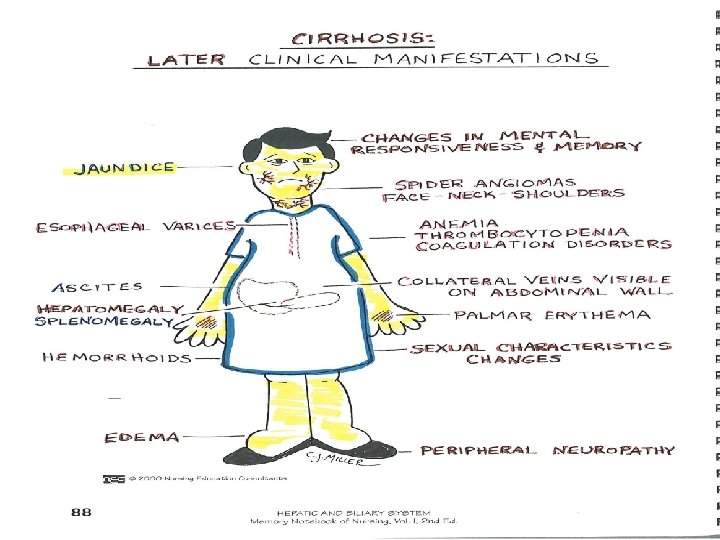 CIRRHOSIS:
LATER CLINICAL MANIFESTATIONS
CHANGES IN MENTAL
RESPONSIVENESS & MEMORY
JAUNDICE
SPIDER ANGIOMAS
FACE - NECK - SHOULDERS
ESOPHAGEAL VARICES
ANEMIA
THROMBOCYTOPENIA
COAGULATION DISORDERS
ASCITES
COLLATERAL VEINS VISIBLE
ON ABDOMINAL WALL
HEPATOMEGALY
SPLENOMEGALY
PALMAR ERYTHEMA
HEMORRHOIDS
SEXUAL CHARACTERISTICS
CHANGES
EDEMA
PERIPHERAL NEUROPATHY
C.J. MILLER
© 2000 Nursing Education Consultants
88
HEPATIC AND BILIARY SYSTEM
Memory Notebook of Nursing, Vol. I, 2nd Ed.